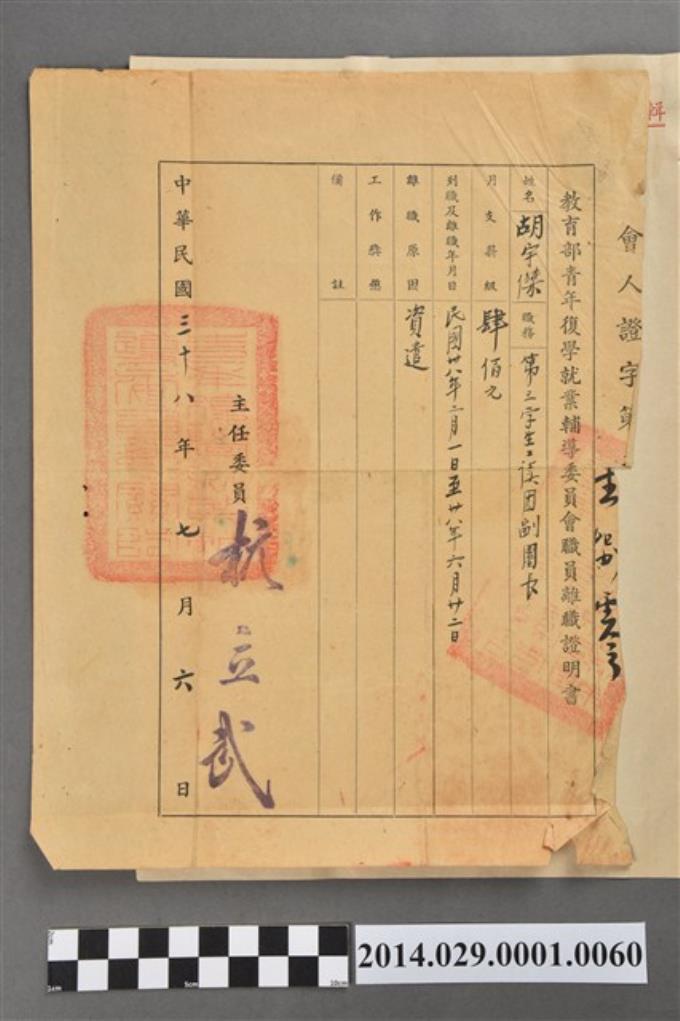 輯
會人證字第
教育部青年復學就業輔導委員會職員離職證明書
姓名 胡宇傑 職務 第三學生誤団副團長
月支薪級 肆佰元
到職及離職年月日 民國卅八年二月一日至卅八年六月廿二日
離職原因 資遣
工作獎懲
備註
主任委員 杭立武
中華民國三十八年七月六日
1cm 5cm 10cm
2014.029.0001.0060